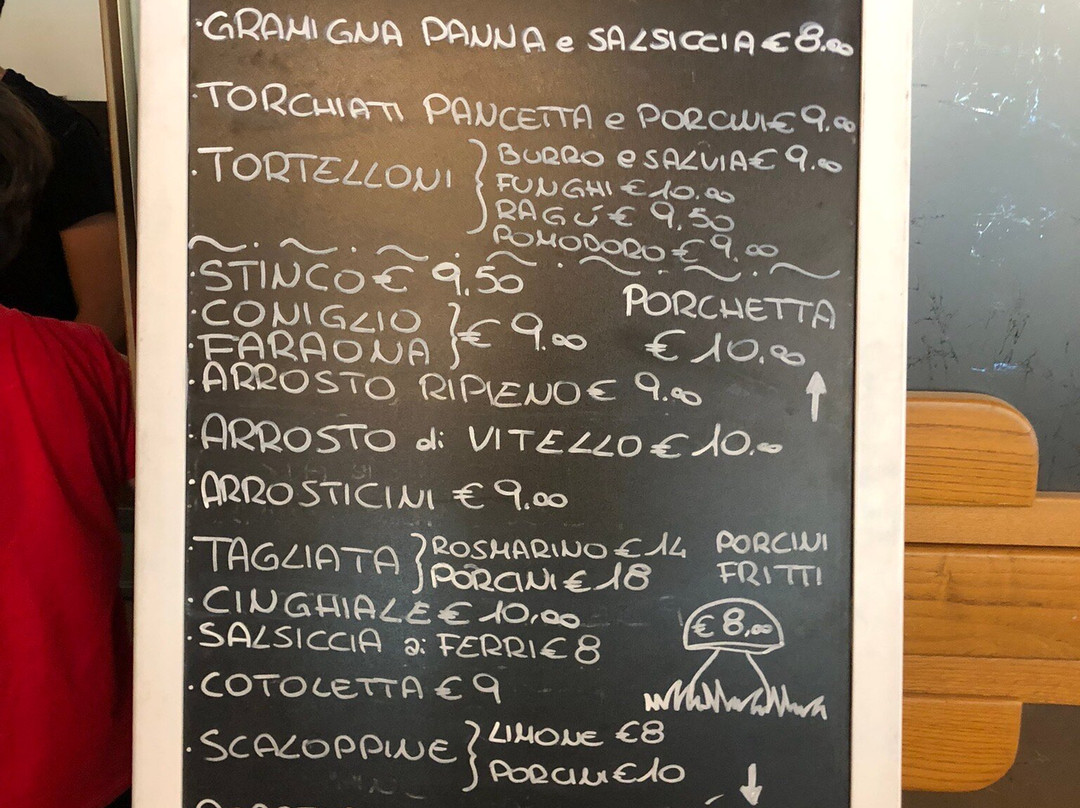 ·GRAMIGNA PANNA e SALSICCIA € 8.00
·TORCHIATI PANCETTA e PORCINI € 9.00
·TORTELLONI } BURRO e SALVIA € 9.00
FUNGHI € 10.00
RAGÚ € 9,50
POMODORO € 9.00
·STINCO € 9,50
·CONIGLIO
·FARAONA } € 9.00
PORCHETTA
€ 10.00
·ARROSTO RIPIENO € 9.00
·ARROSTO di VITELLO € 10.00
·ARROSTICINI € 9.00
·TAGLIATA } ROSMARINO € 14
PORCINI € 18
PORCINI
FRITTI
€ 8,00
·CINGHIALE € 10,00
·SALSICCIA ai FERRI € 8
·COTOLETTA € 9
·SCALOPPINE } LIMONE € 8
PORCINI € 10